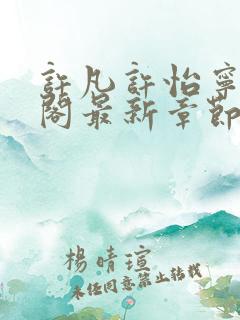 許凡許怡寧
閣最新章節
楊晴瑄
未经同意禁止转载